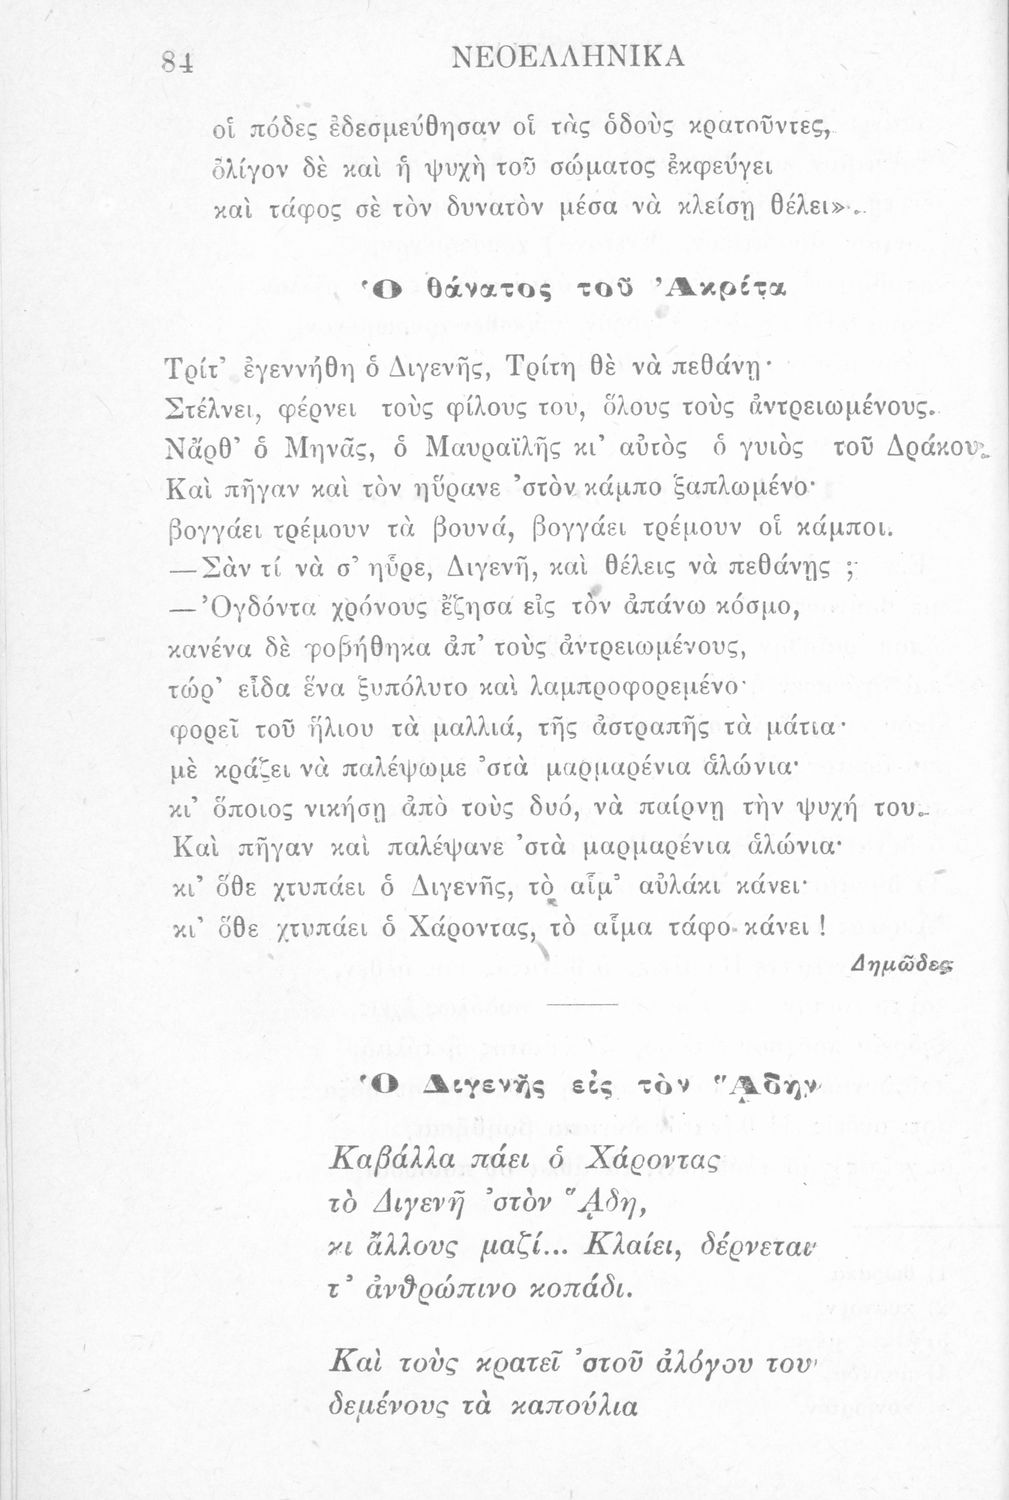 84
ΝΕΟΕΛΛΗΝΙΚΑ
οἱ πόδες ἐδεσμεύθησαν οἱ τὰς ὁδοὺς κρατοῦντες,
ὀλίγον δὲ καὶ ἡ ψυχὴ τοῦ σώματος ἐκφεύγει
καὶ τάφος σὲ τὸν δυνατὸν μέσα νὰ κλείσῃ θέλει».
Ὁ θάνατος τοῦ Ἀκρίτα
Τρίτ’ ἐγεννήθη ὁ Διγενῆς, Τρίτη θὲ νὰ πεθάνῃ·
Στέλνει, φέρνει τοὺς φίλους του, ὅλους τοὺς ἀντρειωμένους.
Νἄρθ’ ὁ Μηνᾶς, ὁ Μαυραϊλῆς κι’ αὐτὸς ὁ γυιὸς τοῦ Δράκου.
Καὶ πῆγαν καὶ τὸν ηὕρανε ’στὸν κάμπο ξαπλωμένο·
βογγάει τρέμουν τὰ βουνά, βογγάει τρέμουν οἱ κάμποι.
—Σὰν τί νὰ σ’ ηὗρε, Διγενῆ, καὶ θέλεις νὰ πεθάνῃς ;
—Ὀγδόντα χρόνους ἔζησα εἰς τὸν ἀπάνω κόσμο,
κανένα δὲ φοβήθηκα ἀπ’ τοὺς ἀντρειωμένους,
τώρ’ εἶδα ἕνα ξυπόλυτο καὶ λαμπροφορεμένο·
φορεῖ τοῦ ἥλιου τὰ μαλλιά, τῆς ἀστραπῆς τὰ μάτια·
μὲ κράζει νὰ παλέψωμε ’στὰ μαρμαρένια ἁλώνια·
κι’ ὅποιος νικήσῃ ἀπὸ τοὺς δυό, νὰ παίρνῃ τὴν ψυχή του.
Καὶ πῆγαν καὶ παλέψανε ’στὰ μαρμαρένια ἁλώνια·
κι’ ὅθε χτυπάει ὁ Διγενῆς, τὸ αἷμ’ αὐλάκι κάνει·
κι’ ὅθε χτυπάει ὁ Χάροντας, τὸ αἷμα τάφο κάνει !
Δημῶδες
Ὁ Διγενῆς εἰς τὸν ᾍδην
Καβάλλα πάει ὁ Χάροντας
τὸ Διγενῆ ’στὸν ᾍδη,
κι ἄλλους μαζί... Κλαίει, δέρνεται
τ’ ἀνθρώπινο κοπάδι.
Καὶ τοὺς κρατεῖ ’στοῦ ἀλόγου του
δεμένους τὰ καπούλια